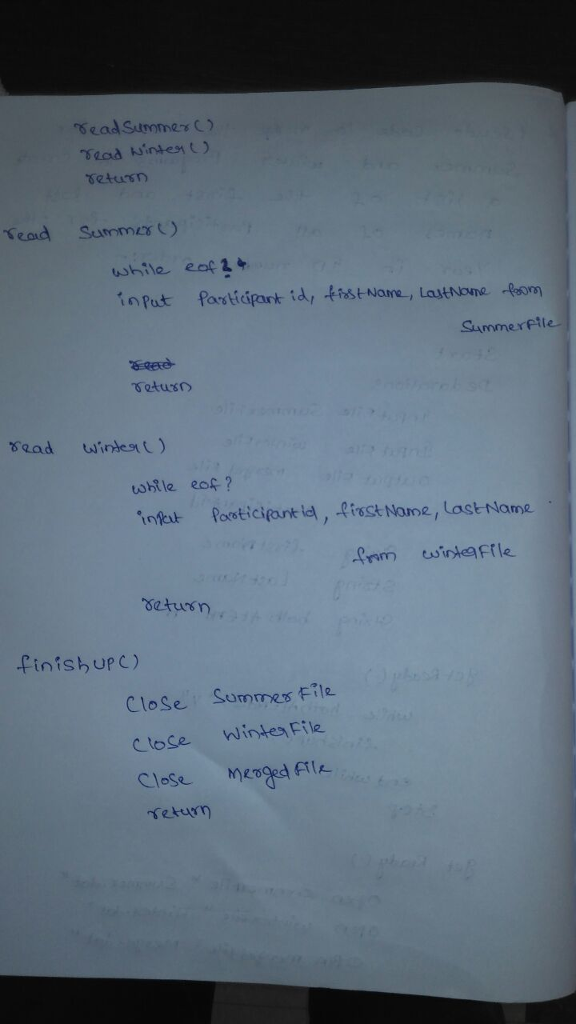 readSummer()
read Winter()
return
read Summer()
while eof?
input Participant id, firstName, LastName from
SummerFile
read
return
read winter()
while eof?
input ParticipantId, firstName, LastName
from winterFile
return
finishUP()
Close SummerFile
Close WinterFile
Close MergedFile
return